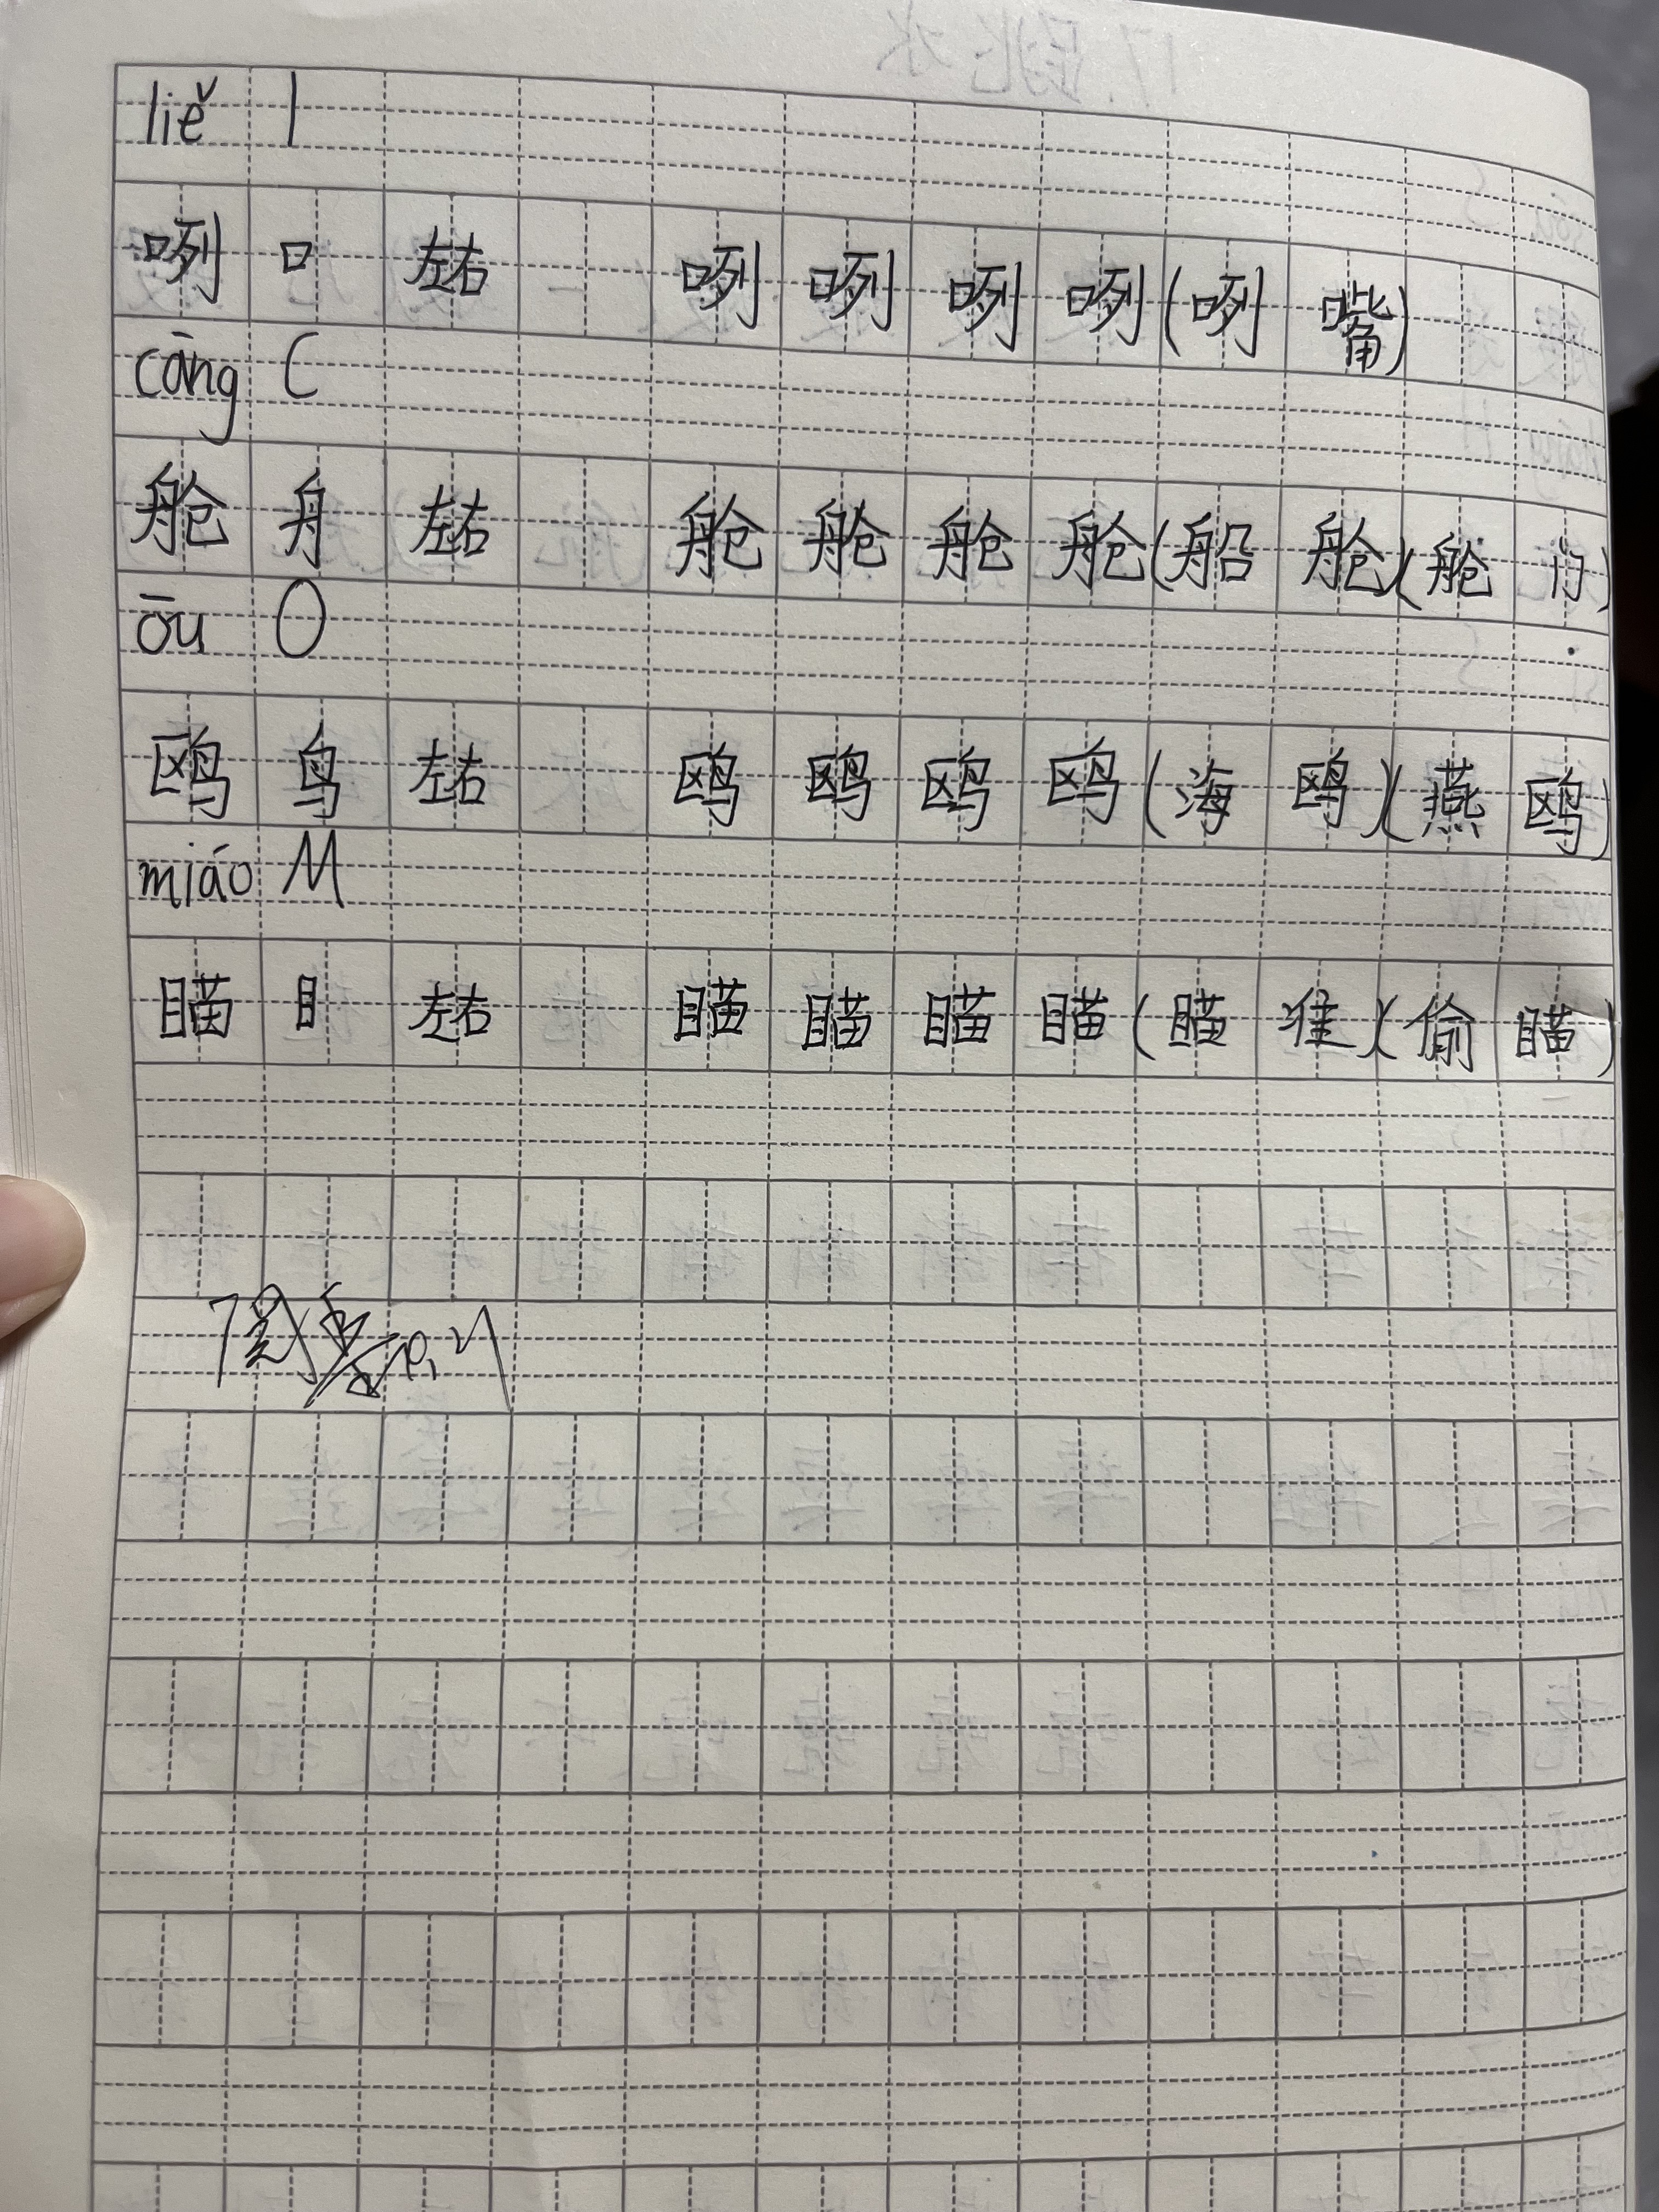 liě l
咧 口 左右 咧 咧 咧 咧 (咧 嘴)
cāng C
舱 舟 左右 舱 舱 舱 舱 (船 舱) (舱 门)
ōu O
鸥 鸟 左右 鸥 鸥 鸥 鸥 (海 鸥) (燕 鸥)
miáo M
瞄 目 左右 瞄 瞄 瞄 瞄 (瞄 准) (偷 瞄)